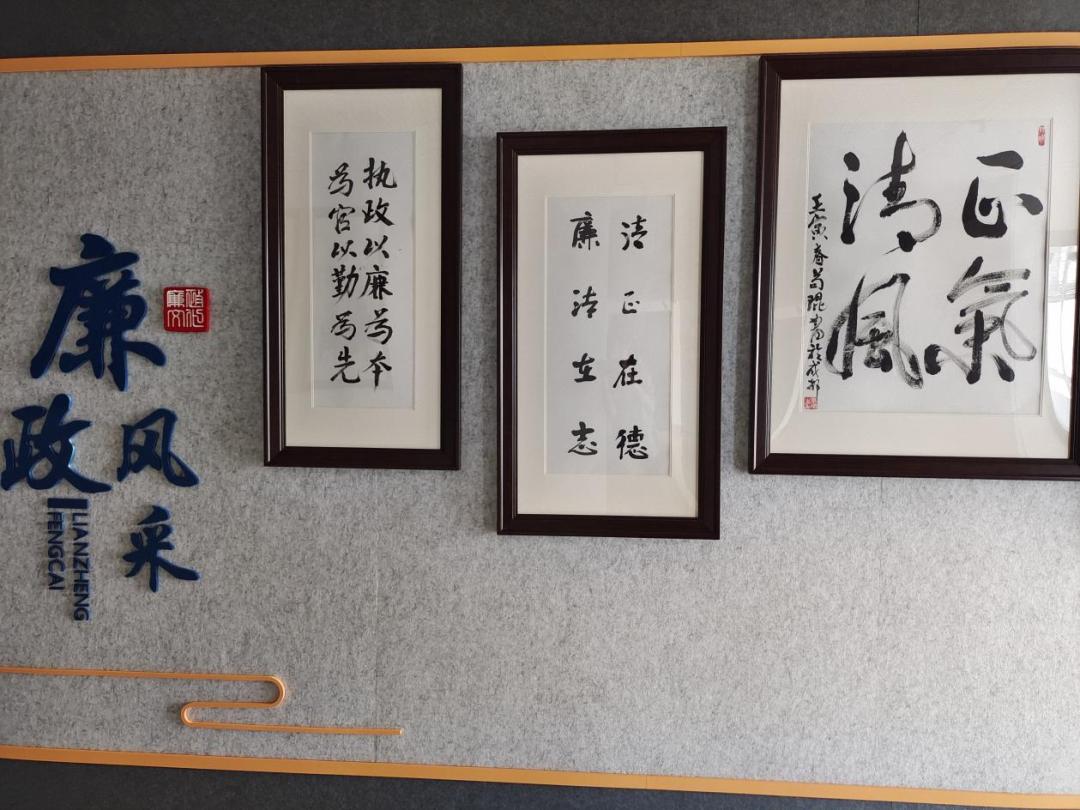 廉政
风采
LIANZHENG
FENGCAI
执政以廉为本
为官以勤为先
清正在德
廉洁在志
正氣
清風
壬寅春